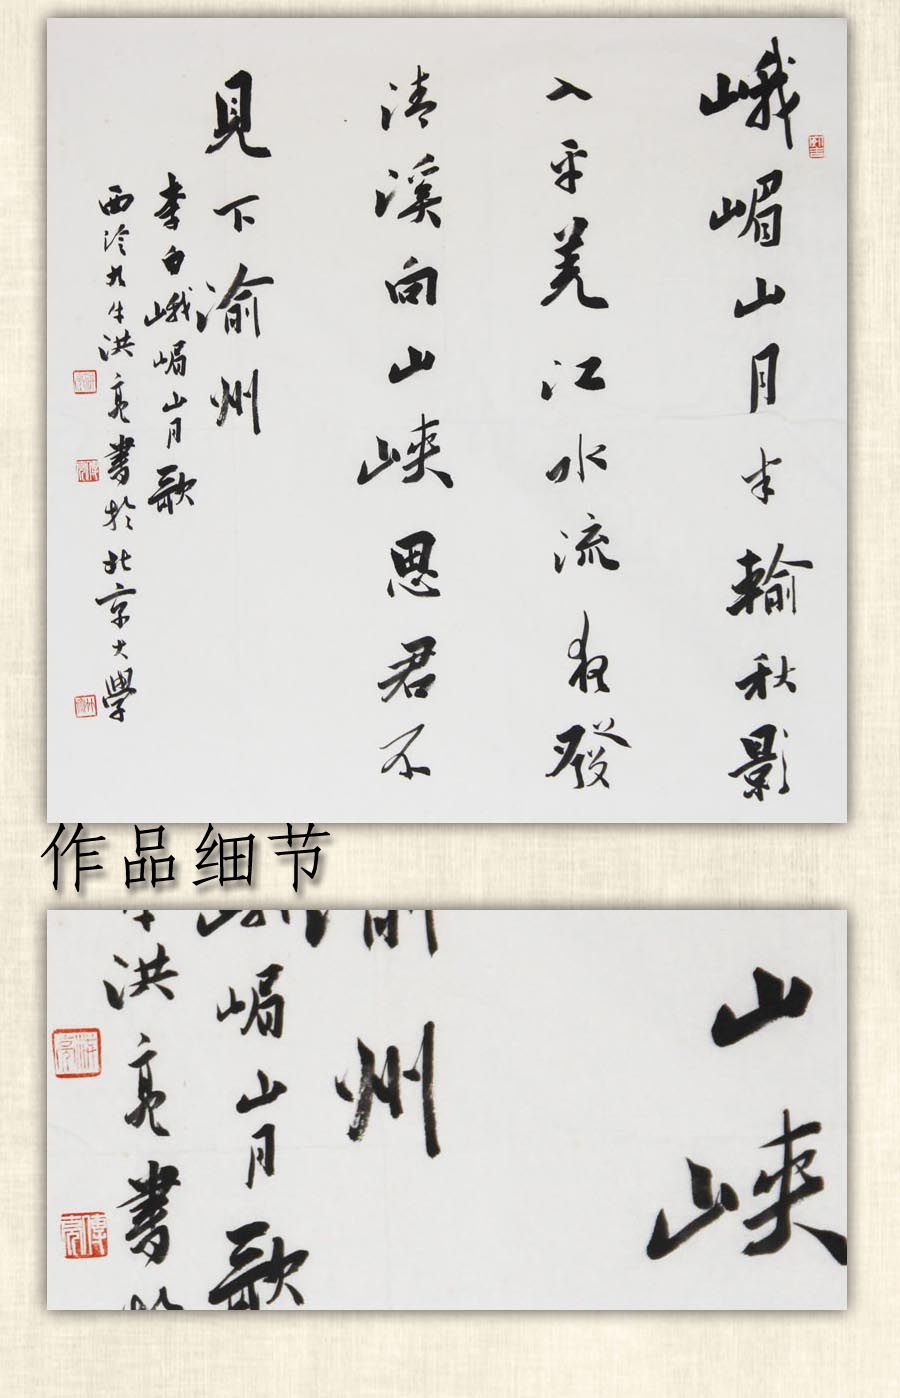 峨嵋山月半輸秋影
入平羌江水流夜發
清溪向山峽思君不
見下渝州
李白峨嵋山月歌
西泠九牛洪亮書於北京大學
作品细节
山峽
渝州
峨嵋山月歌
牛洪亮書於